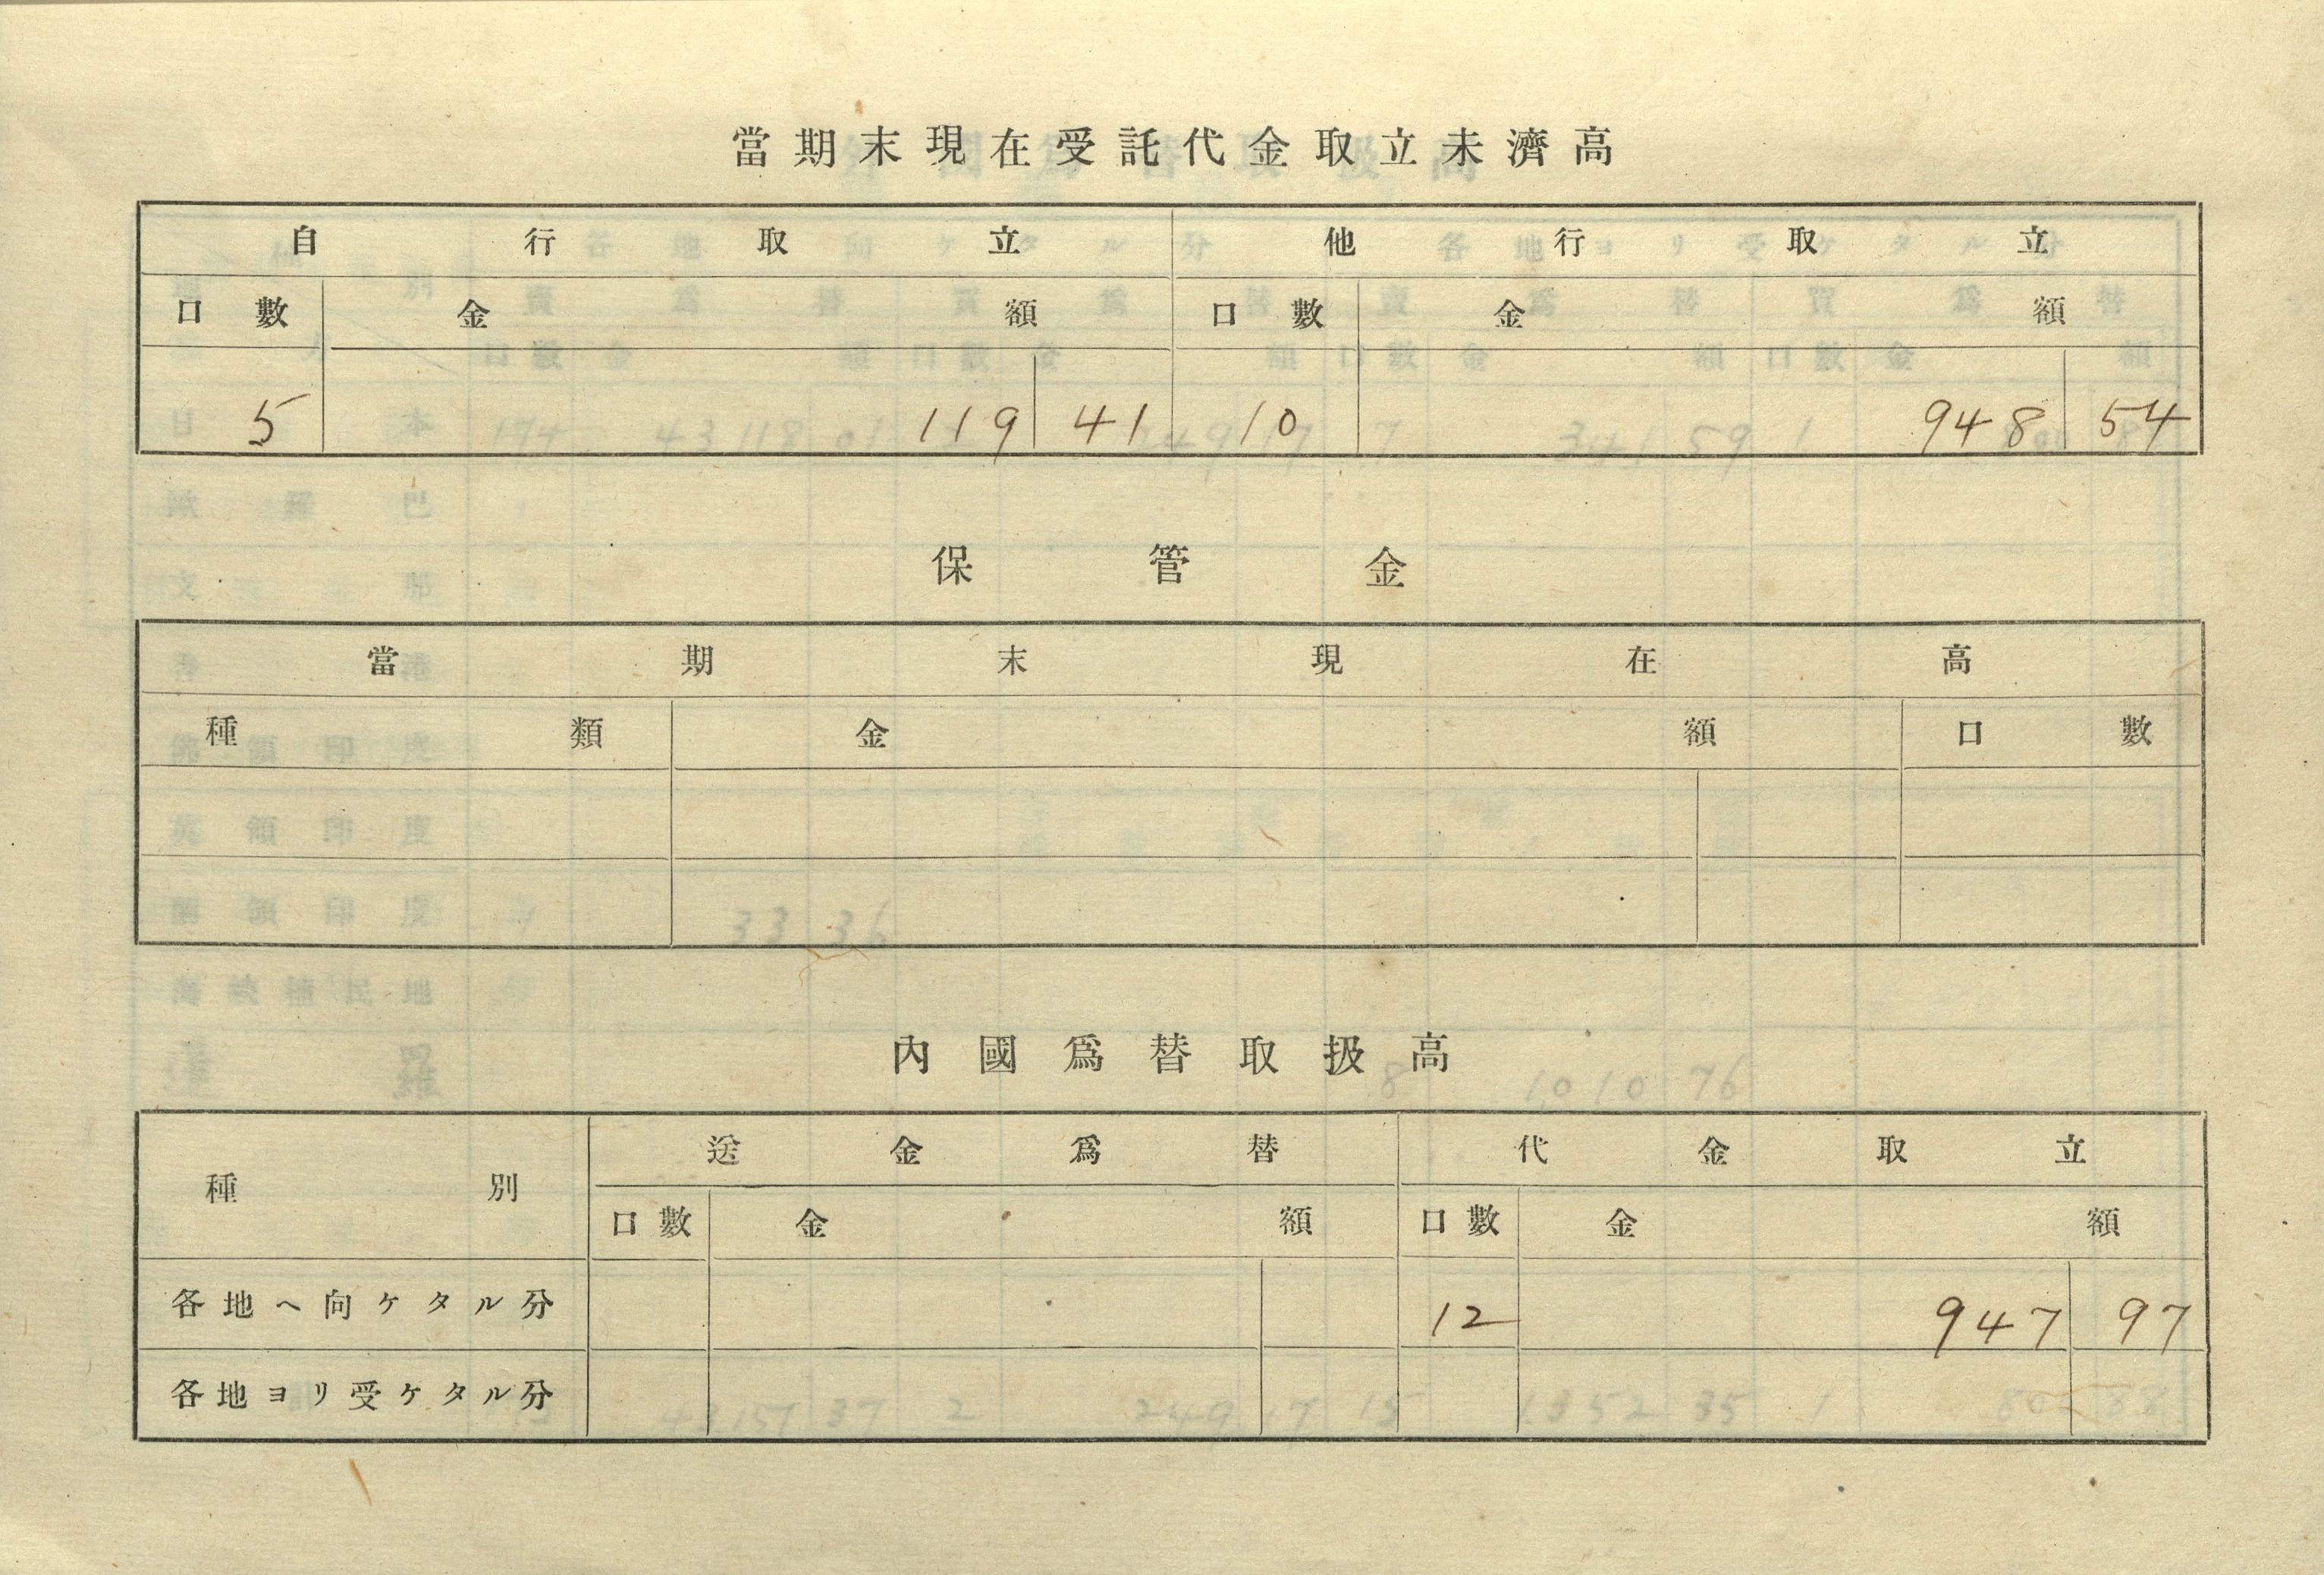 當期末現在受託代金取立未濟高
自行取立 他行取立
口數 金額 口數 金額
5 119 41 10 948 54
保管金
當期末現在高
種類 金額 口數
內國爲替取扱高
種別 送金爲替 代金取立
口數 金額 口數 金額
各地へ向ケタル分 12 947 97
各地ヨリ受ケタル分